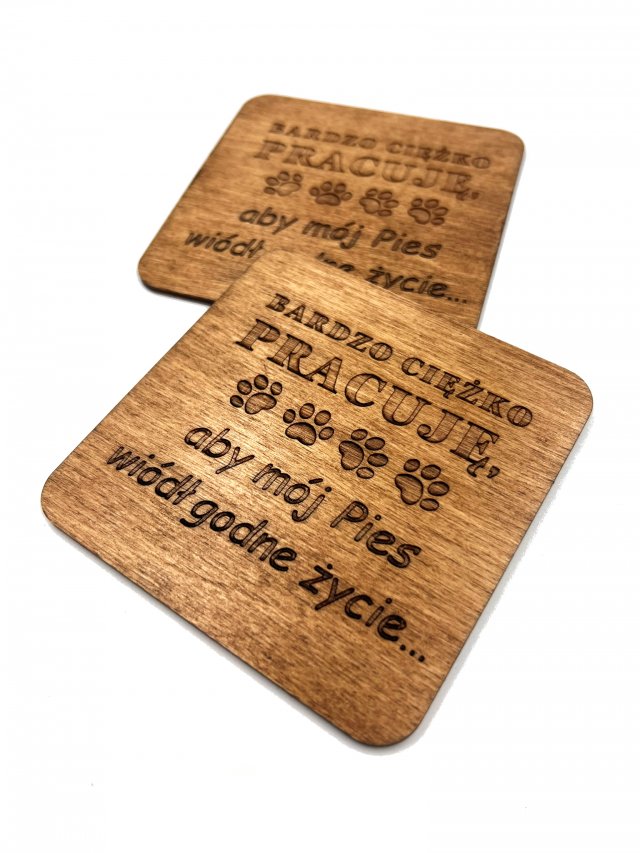 BARDZO CIĘŻKO
PRACUJĘ,
aby mój Pies
wiódł życie...
BARDZO CIĘŻKO
PRACUJĘ,
aby mój Pies
wiódł godne życie...